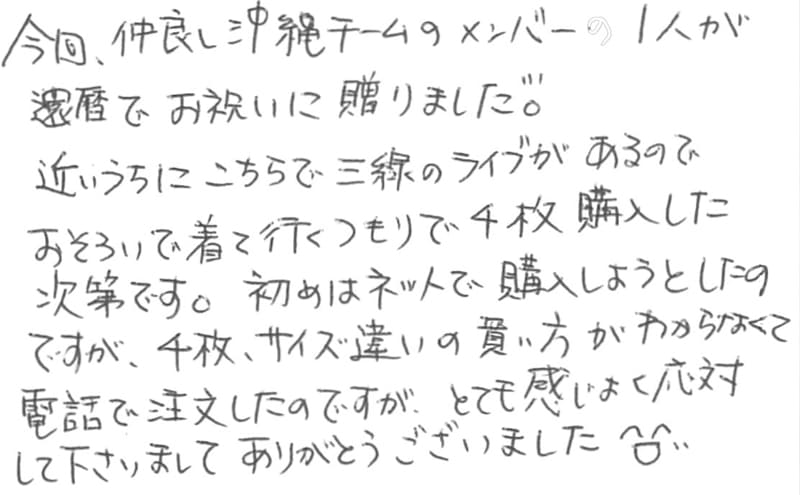 今回、仲良し沖縄チームのメンバーの1人が
還暦でお祝いに贈りました。
近いうちにこちらで三線のライブがあるので
おそろいで着て行くつもりで4枚購入した
次第です。初めはネットで購入しようとしたの
ですが、4枚、サイズ違いの買い方がわからなくて
電話で注文したのですが、とても感じよく応対
して下さいましてありがとうございました